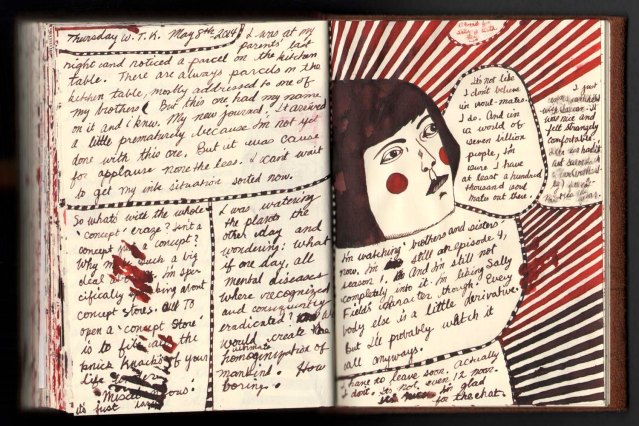 Thursday W.T.K. May 8th 2014
I was at my
parents' last
night and noticed a parcel on the kitchen
table. There are always parcels on the
kitchen table, mostly addressed to one of
my brothers. But this one had my name
on it and i knew. My new journal. It arrived
a little prematurely because i'm not yet
done with this one. But it was cause
for applause none the less. I can't wait
to get my ink situation sorted now.
So what's with the whole
'concept' craze? Isn't a
concept a concept?
Why such a big
deal i'm spe-
cifically about
concept stores. TO
open a 'concept store'
is to the
knick knacks of your
life
Miscellaneous!
it's just
I was watering
the plants the
other day and
wondering: what
if one day, all
mental diseases
where recognized
and consequently
eradicated?
would create the
ultimate
homogenization of
mankind. How
boring.
It's not like
I don't believe
in soul-mates.
I do. And in
a world of
seven billion
people, i'm
sure i have
at least a hundred
thousand soul
mates out there.
I just
was nice and
felt strangely
comfortable.
I'm watching 'brothers and sisters'
now. i'm still on episode 4,
season 1. And i'm still not
completely into it. i'm liking Sally
Field's character, though. Every
body else is a little derivative.
But i'll probably watch it
all anyways.
I have to leave soon. Actually
I don't. It's not even 12 now.
i'm glad
for the chat.